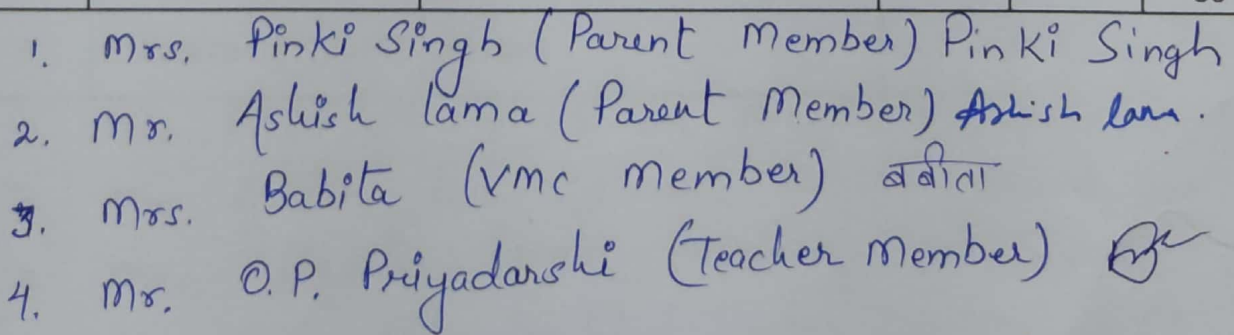 1. Mrs. Pinki Singh (Parent Member) Pinki Singh
2. Mr. Ashish lama (Parent Member) Ashish lama.
3. Mrs. Babita (VMC Member) बबीता
4. Mr. O.P. Priyadarshi (Teacher Member)